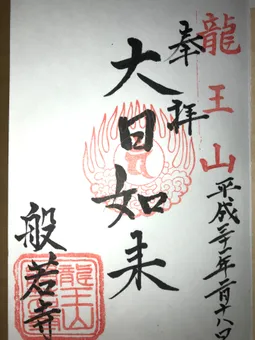 龍王山
平成 十八日
奉拝
大日如来
般若寺
龍王山